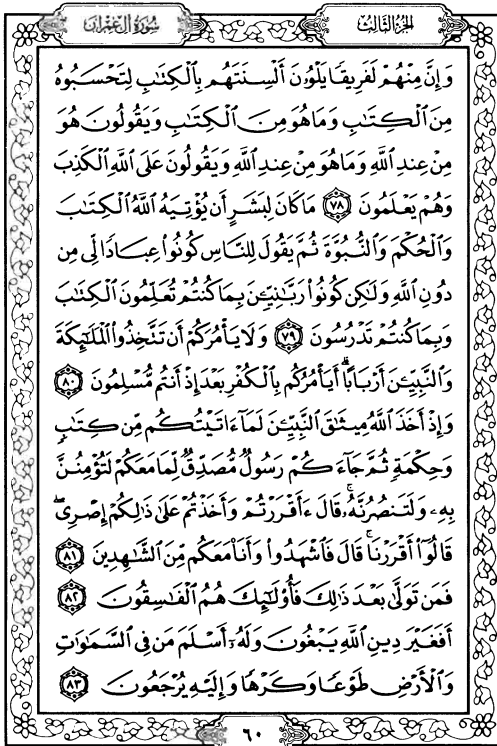 سُورَةُ آلِ عِمْرَانَ الجُزْءُ الثَّالِثُ
وَإِنَّ مِنْهُمْ لَفَرِيقًا يَلْوُۥنَ أَلْسِنَتَهُم بِٱلْكِتَٰبِ لِتَحْسَبُوهُ
مِنَ ٱلْكِتَٰبِ وَمَا هُوَ مِنَ ٱلْكِتَٰبِ وَيَقُولُونَ هُوَ
مِنْ عِندِ ٱللَّهِ وَمَا هُوَ مِنْ عِندِ ٱللَّهِ وَيَقُولُونَ عَلَى ٱللَّهِ ٱلْكَذِبَ
وَهُمْ يَعْلَمُونَ ٧٨ مَا كَانَ لِبَشَرٍ أَن يُؤْتِيَهُ ٱللَّهُ ٱلْكِتَٰبَ
وَٱلْحُكْمَ وَٱلنُّبُوَّةَ ثُمَّ يَقُولَ لِلنَّاسِ كُونُوا۟ عِبَادًا لِّى مِن
دُونِ ٱللَّهِ وَلَٰكِن كُونُوا۟ رَبَّٰنِيِّـۧنَ بِمَا كُنتُمْ تُعَلِّمُونَ ٱلْكِتَٰبَ
وَبِمَا كُنتُمْ تَدْرُسُونَ ٧٩ وَلَا يَأْمُرَكُمْ أَن تَتَّخِذُوا۟ ٱلْمَلَٰٓئِكَةَ
وَٱلنَّبِيِّـۧنَ أَرْبَابًا ۗ أَيَأْمُرُكُم بِٱلْكُفْرِ بَعْدَ إِذْ أَنتُم مُّسْلِمُونَ ٨٠
وَإِذْ أَخَذَ ٱللَّهُ مِيثَٰقَ ٱلنَّبِيِّـۧنَ لَمَآ ءَاتَيْتُكُم مِّن كِتَٰبٍ
وَحِكْمَةٍ ثُمَّ جَآءَكُمْ رَسُولٌ مُّصَدِّقٌ لِّمَا مَعَكُمْ لَتُؤْمِنُنَّ
بِهِۦ وَلَتَنصُرُنَّهُۥ ۚ قَالَ ءَأَقْرَرْتُمْ وَأَخَذْتُمْ عَلَىٰ ذَٰلِكُمْ إِصْرِى ۖ
قَالُوٓا۟ أَقْرَرْنَا ۚ قَالَ فَٱشْهَدُوا۟ وَأَنَا۠ مَعَكُم مِّنَ ٱلشَّٰهِدِينَ ٨١
فَمَن تَوَلَّىٰ بَعْدَ ذَٰلِكَ فَأُو۟لَٰٓئِكَ هُمُ ٱلْفَٰسِقُونَ ٨٢
أَفَغَيْرَ دِينِ ٱللَّهِ يَبْغُونَ وَلَهُۥٓ أَسْلَمَ مَن فِى ٱلسَّمَٰوَٰتِ
وَٱلْأَرْضِ طَوْعًا وَكَرْهًا وَإِلَيْهِ يُرْجَعُونَ ٨٣
٦٠